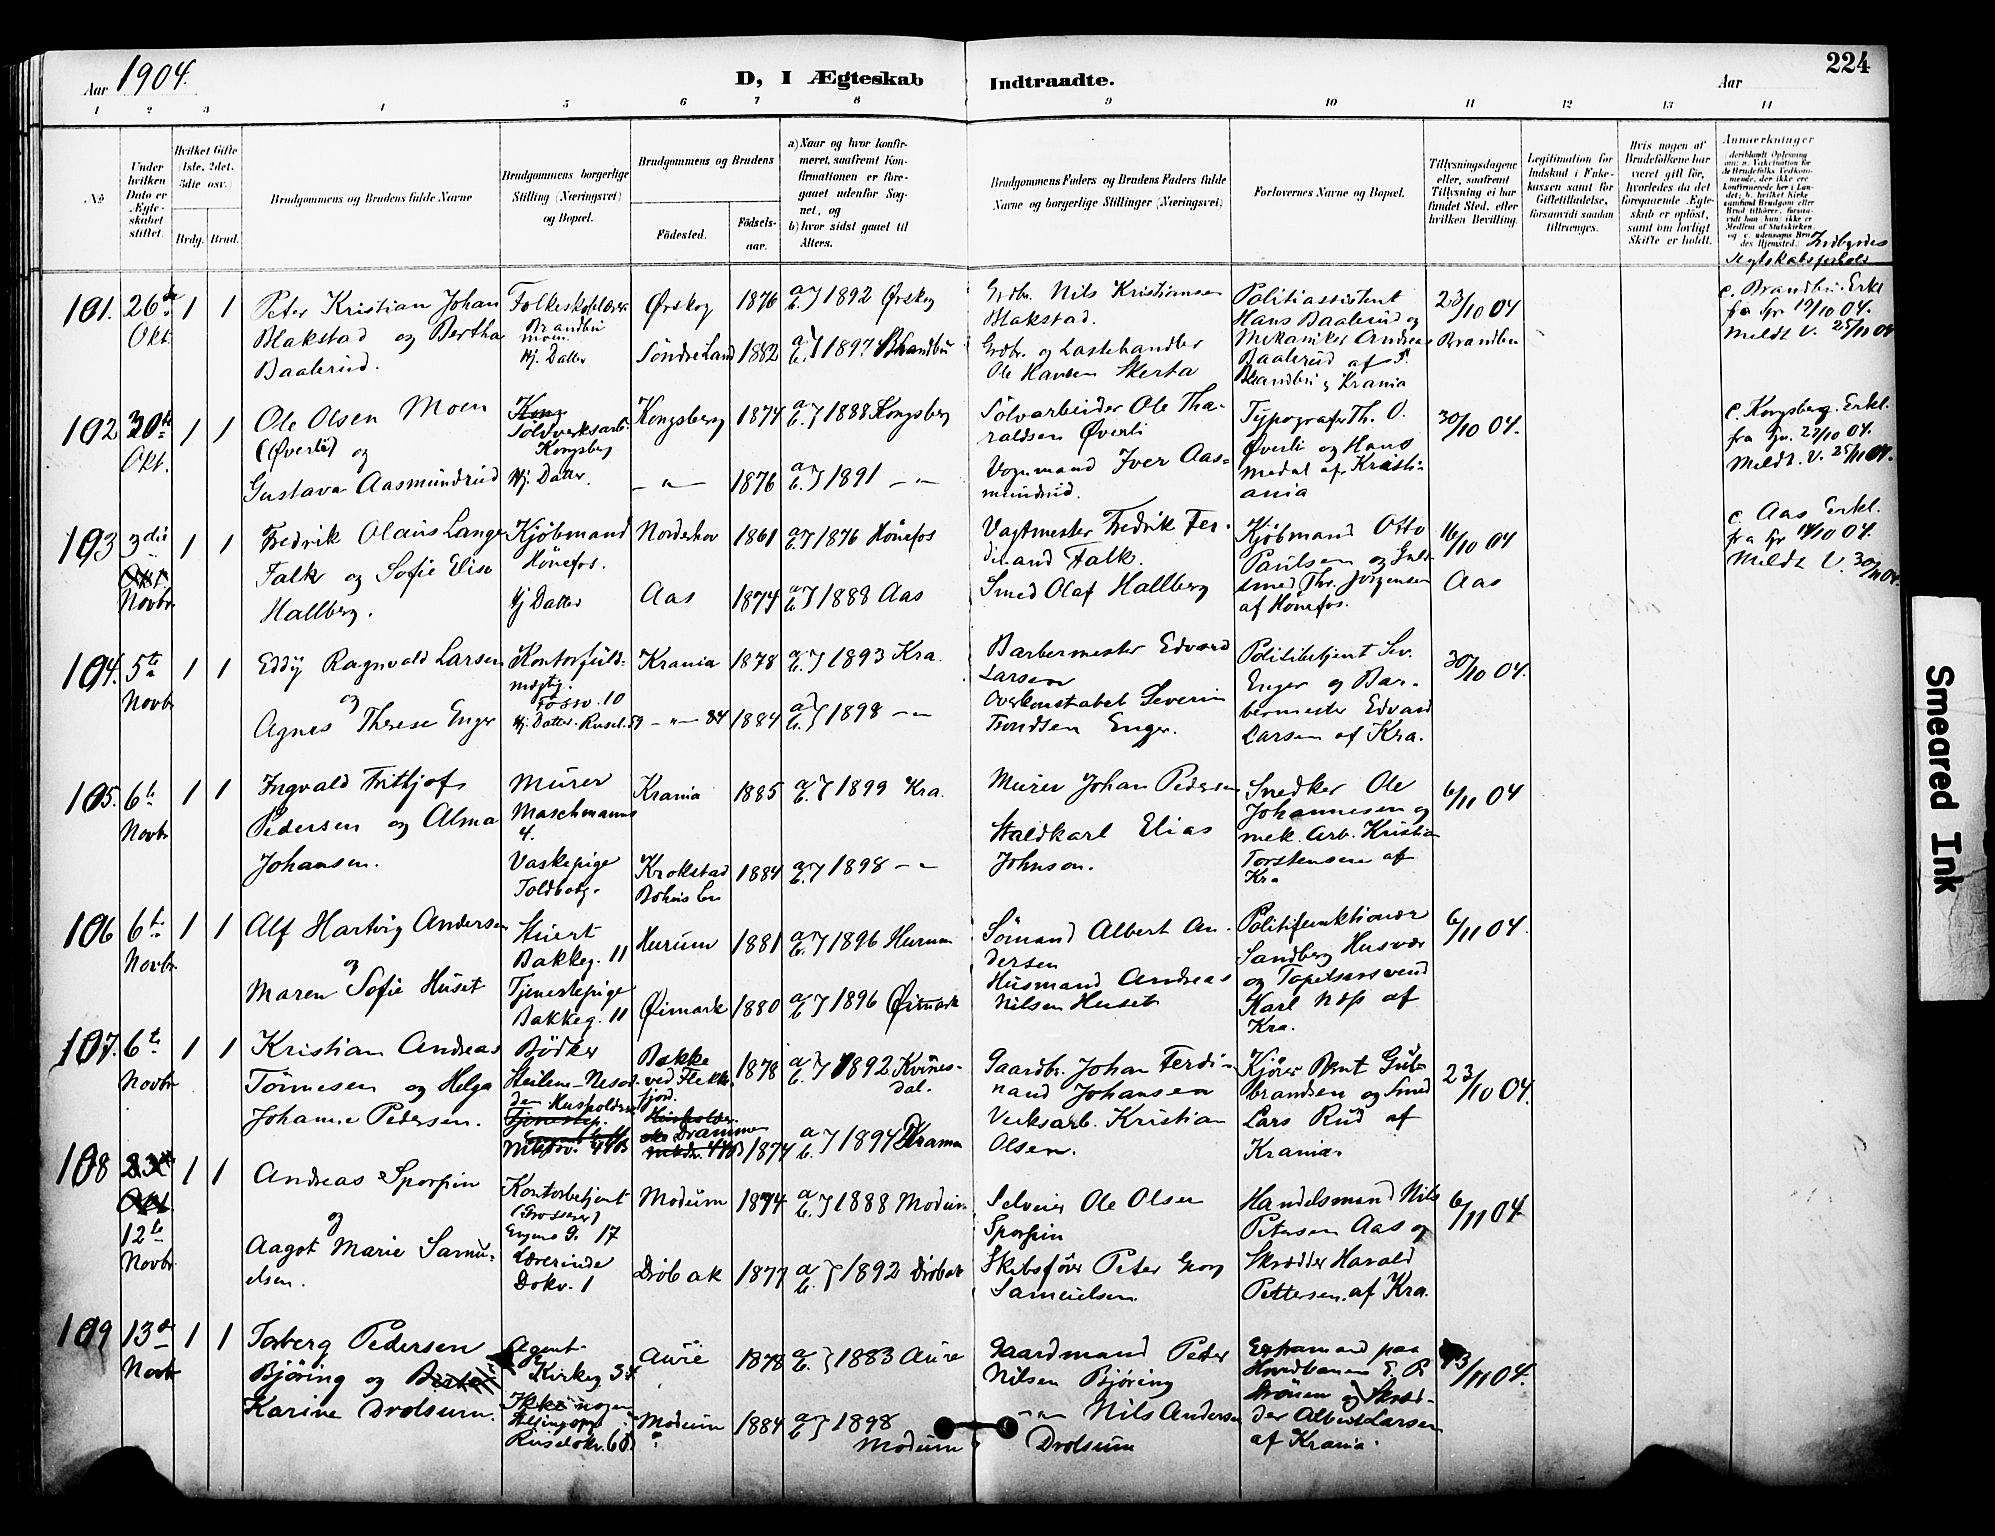 Aar 1904.
D, I Ægteskab Indtraadte.
Aar
224
1 2 3 4 5 6 7 8 9 10 11 12 13 14
No
Under hvilken Dato er Ægteskabet stiftet.
Hvilket Gifte (1ste, 2det, 3die osv.)
Brdg. Brud.
Brudgommens og Brudens fulde Navne
Brudgommens borgerlige Stilling (Næringsvei) og Bopæl.
Brudgommens og Brudens
Fødested.
Fødsels-aar.
a) Naar og hvor konfirmeret, saafremt Konfirmationen er foregaaet udenfor Sognet, og
b) hvor sidst gaaet til Alters.
Brudgommens Faders og Brudens Faders fulde Navne og borgerlige Stillinger (Næringsvei)
Forlovernes Navne og Bopæl.
Tillysningsdagene eller, saafremt Tillysning ei har fundet Sted, efter hvilken Bevilling.
Legitimation for Indskud i Enkekassen samt for Giftetilladelse, forsaavidt saadan tiltrænges.
Hvis nogen af Brudefolkene har været gift før, hvorledes da det foregaaende Ægteskab er opløst, samt om lovligt Skifte er holdt.
Anmærkninger
Indbyrdes Slegtskabsforhold
101. 26de Okt. 1 1
Peter Kristian Johan
Blakstad og Bertha
Baalerud.
Folkeskolelærer
Brandbu
Hj. Datter
Ørskog 1876 a b } 1892 Ørskog
Søndre Land 1882 a b } 1897 Brandbu
Grdbr. Nils Kristiansen
Blakstad.
Grdbr. og Lastehandler
Ole Hansen
Politiassistent
Hans Baalerud og
Mekaniker Andreas
Baalerud af
Brandbu & Krania
23/10 04
Brandbu
c. Brandbu. Erkl.
fra Spr 19/10 04.
Meldt V. 25/11 04
102 30te Okt. 1 1
Ole Olsen Moen
(Øverli) og
Gustava Aasmundrud
Kong
Sølvverksarb.
Kongsberg
Hj. Datter.
Kongsberg 1874 a b } 1888 Kongsberg
— " — 1876 a b } 1891 — " —
Sølvarbeider Ole Tha-
raldsen Øverli
Vognmand Iver Aas-
mundrud.
Typograf Th. O.
Øverli og Hans
Medal af Kristi-
ania
30/10 04.
c. Kongsberg. Erkl.
fra Spr. 27/10 04.
Meldt. V. 25/11 04.
103 3die Okt Novbr 1 1
Fredrik Olaus Lange
Falk og Sofie Elise
Hallberg.
Kjøbmand
Hønefos.
Hj Datter
Norderhov 1861 a b } 1876 Hønefos
Aas 1874 a b } 1888 Aas
Vagtmester Fredrik Fer-
dinand Falk.
Smed Olaf Hallberg
Kjøbmand Otto
Paulsen og Guld-
smed Thr. Jørgensen
af Hønefos.
16/10 04
Aas
c. Aas Erkl.
fra Spr 14/10 04.
Meldt V. 30/11 04.
104. 5te Novbr 1 1
Eddy Ragnvald Larsen
og
Agnes Therese Enger
Kontorfuld-
mægtig.
Fossv. 10
Hj. Datter. Rusel. 59
Krania 1878 a b } 1893 Kra.
— " — 84 1884 a b } 1898 — " —
Barbermester Edvard
Larsen
Overkonstabel Severin
Trondsen Enger.
Politibetjent Sev.
Enger og Bar-
bermester Edvard
Larsen af Kra.
30/10 04.
105. 6te Novbr 1 1
Ingvald Frithjof
Pedersen og Alma
Johansen.
Murer
Maschmanns
4.
Vaskepige
Toldbodg.
Krania 1885 a b } 1899 Kra.
Krokstad
Bohus Len 1884 a b } 1898 — " —
Murer Johan Pedersen
Staldkarl Elias
Johnson.
Snedker Ole
Johannesen og
mek. Arb. Kristian
Torstensen af
Kra
6/11 04
106 6te Novbr 1 1
Alf Hartvig Andersen
og
Maren Sofie Huset
Stuert
Bakkeg. 11
Tjenestepige
Bakkeg. 11
Hurum 1881 a b } 1896 Hurum
Øimark 1880 a b } 1896 Øimark
Sømand Albert An-
dersen
Husmand Andreas
Nilsen Huset
Politifunktionær
Sandberg Husvær
og Tapetserersvend
Karl Næs af
Kra.
6/11 04.
107. 6te Novbr 1 1
Kristian Andreas
Tønnesen og Helga
Johanne Pedersen.
Bødker
Steilene-Nesod-
den Husholderske
Tjenestep.
Bakke
ved Flekke-
fjord. 1878 a b } 1892 Kvines-
dal.
Drammen
1874 a b } 1894 Dramm
Gaardbr. Johan Ferdi-
nand Johansen
Verksarb. Kristian
Olsen.
Kjører Bent Gul-
brandsen og Smed
Lars Rud af
Krania.
23/10 04.
108 Okt 12te Novbr 1 1
Andreas Sporpin
og
Aagot Marie Samu-
elsen.
Kontorbetjent
(Grosserer)
Eugens G. 17
Lærerinde
Dokv. 1
Modum 1874 a b } 1888 Modum
Drøbak 1877 a b } 1892 Drøbak
Selveier Ole Olsen
Sporpin
Skibsfører Peter Georg
Samuelsen
Handelsmand Nils
Petersen Aas og
Skrædder Harald
Pettersen af Kra.
6/11 04.
109 13de Novb 1 1
Torberg Pedersen
Bjøring og
Karine Drolsum.
Agent
Kirkeg 34.
Ikke nogen
Stilling opg.
Ruseløkv. 60
Aure 1878 a b } 1883 Aure
Modum 1884 a b } 1898
Modum
Gaardmand Peter
Nilsen Bjøring
— " — Nils Andersen
Drolsum
Extramand paa
Hovedbanen E. P.
og Skræd-
der Albert Larsen
af Krania.
13/11 04.
Smeared Ink